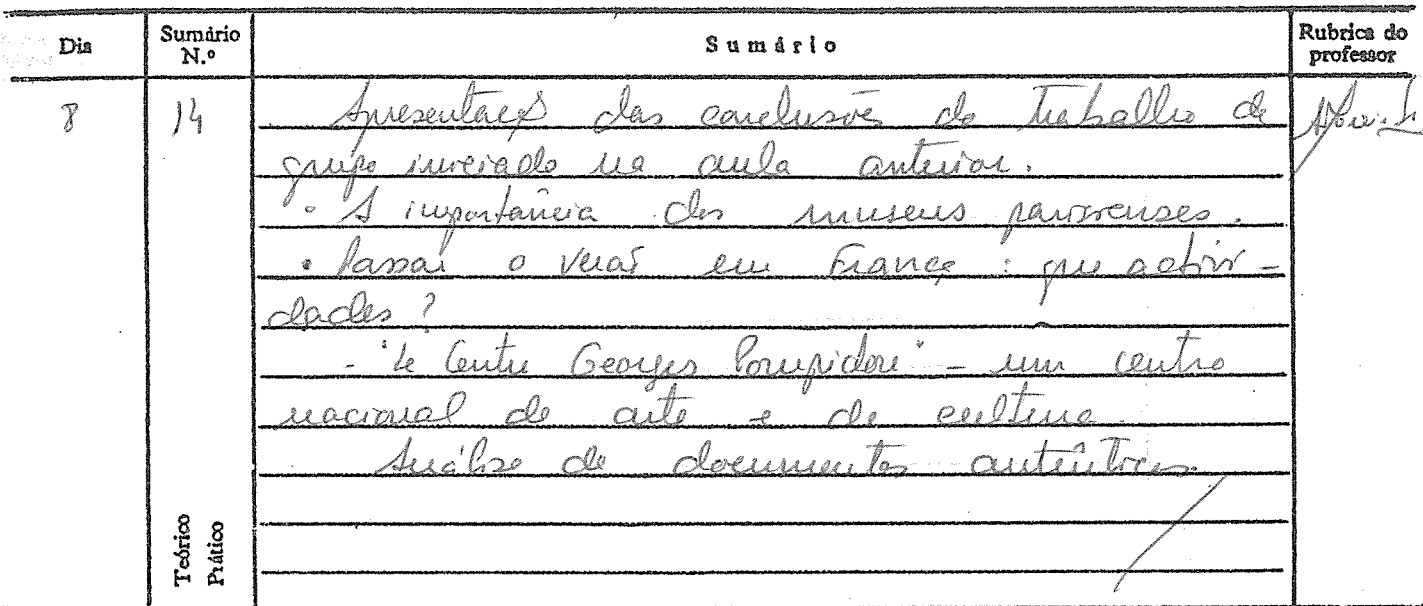 Dia Sumário N.º Sumário Rubrica do professor
8 14 Apresentação das conclusões do trabalho de
grupo iniciado na aula anterior.
• A importância dos museus parisienses.
• Passar o verão em França : que activi-
dades ?
- "Le Centre Georges Pompidou" - um centro
nacional de arte e de cultura
Análise de documentos autênticos.
Teórico
Prático